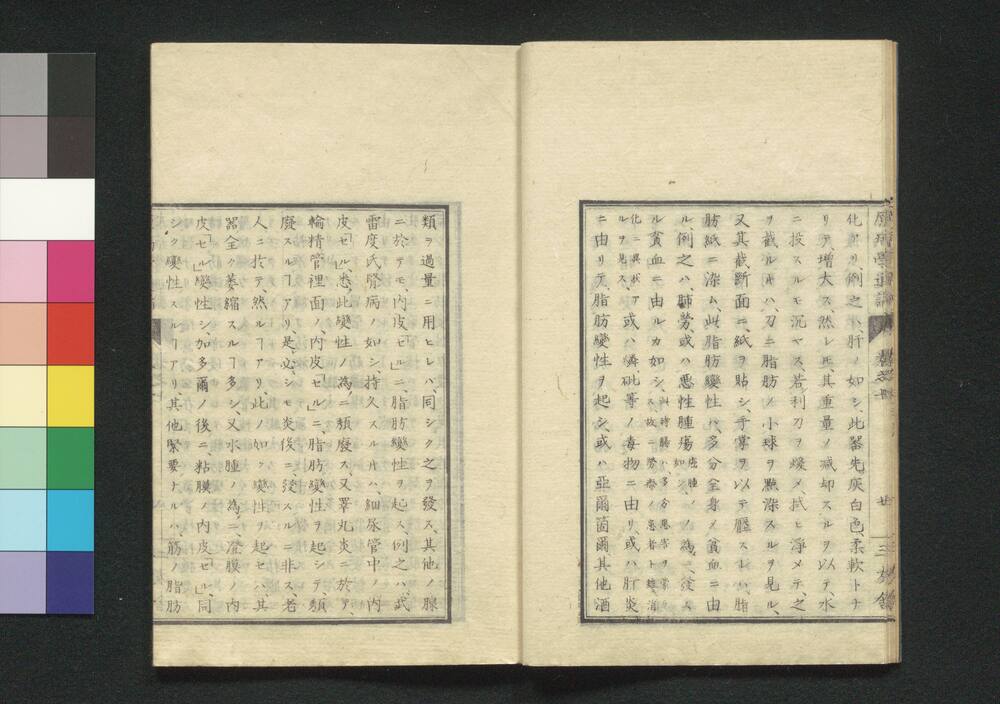 化スルナリ、例之ハ、肝ノ如シ、此器先灰白色、柔軟トナ
リテ、増大ス、然レ𪜈、其重量ノ減却スルヲ以テ、水
ニ投スルモ沉マス、若利刀ヲ煖メ、拭ヒ浄メテ、之
ヲ截ルキハ、刀ニ脂肪ノ小球ヲ點染スルヲ見ル、
又其截断面ニ、紙ヲ貼シ、手掌ヲ以テ壓スレハ、脂
肪紙ニ染ム、此脂肪變性ハ、多分全身ノ貧血ニ由
ル、例之ハ、肺勞、或ハ悪性腫瘍ノ為ニ、發ス
ル貧血ニ由ルカ如シ、
化ニ異状ア
ルヲ見ス、
或ハ燐砒等ノ毒物ニ由リ、或ハ肝炎
ニ由リテ、脂肪變性ヲ起シ、或ハ亞爾箇爾、其他酒
類ヲ過量ニ用ヒレハ同シク之ヲ發ス、其他ノ腺
ニ於テモ、内皮「セル」ニ脂肪變性ヲ起ス、例之ハ、武
雷度氏腎病ノ如シ、持久スルキハ、細尿管中ノ内
皮「セル」、悉此變性ノ為ニ頽廢ス、又睾丸炎ニ於テ、
輸精管裡面ノ、内皮「セル」ニ、脂肪變性ヲ起シテ、頽
廢スルヿアリ、是必シモ炎後ニ發スルニ非ス、老
人ニ於テ、然ルヿアリ、此ノ如ク變性ヲ起セハ、其
器全ク萎縮スルヿ多シ、又水腫ノ為ニ澄膜ノ内
皮「セル」變性シ、加多爾ノ後ニ、粘膜ノ内皮「セル」、同
シク變性スルヿアリ、其他緊要ナルハ、筋ノ脂肪